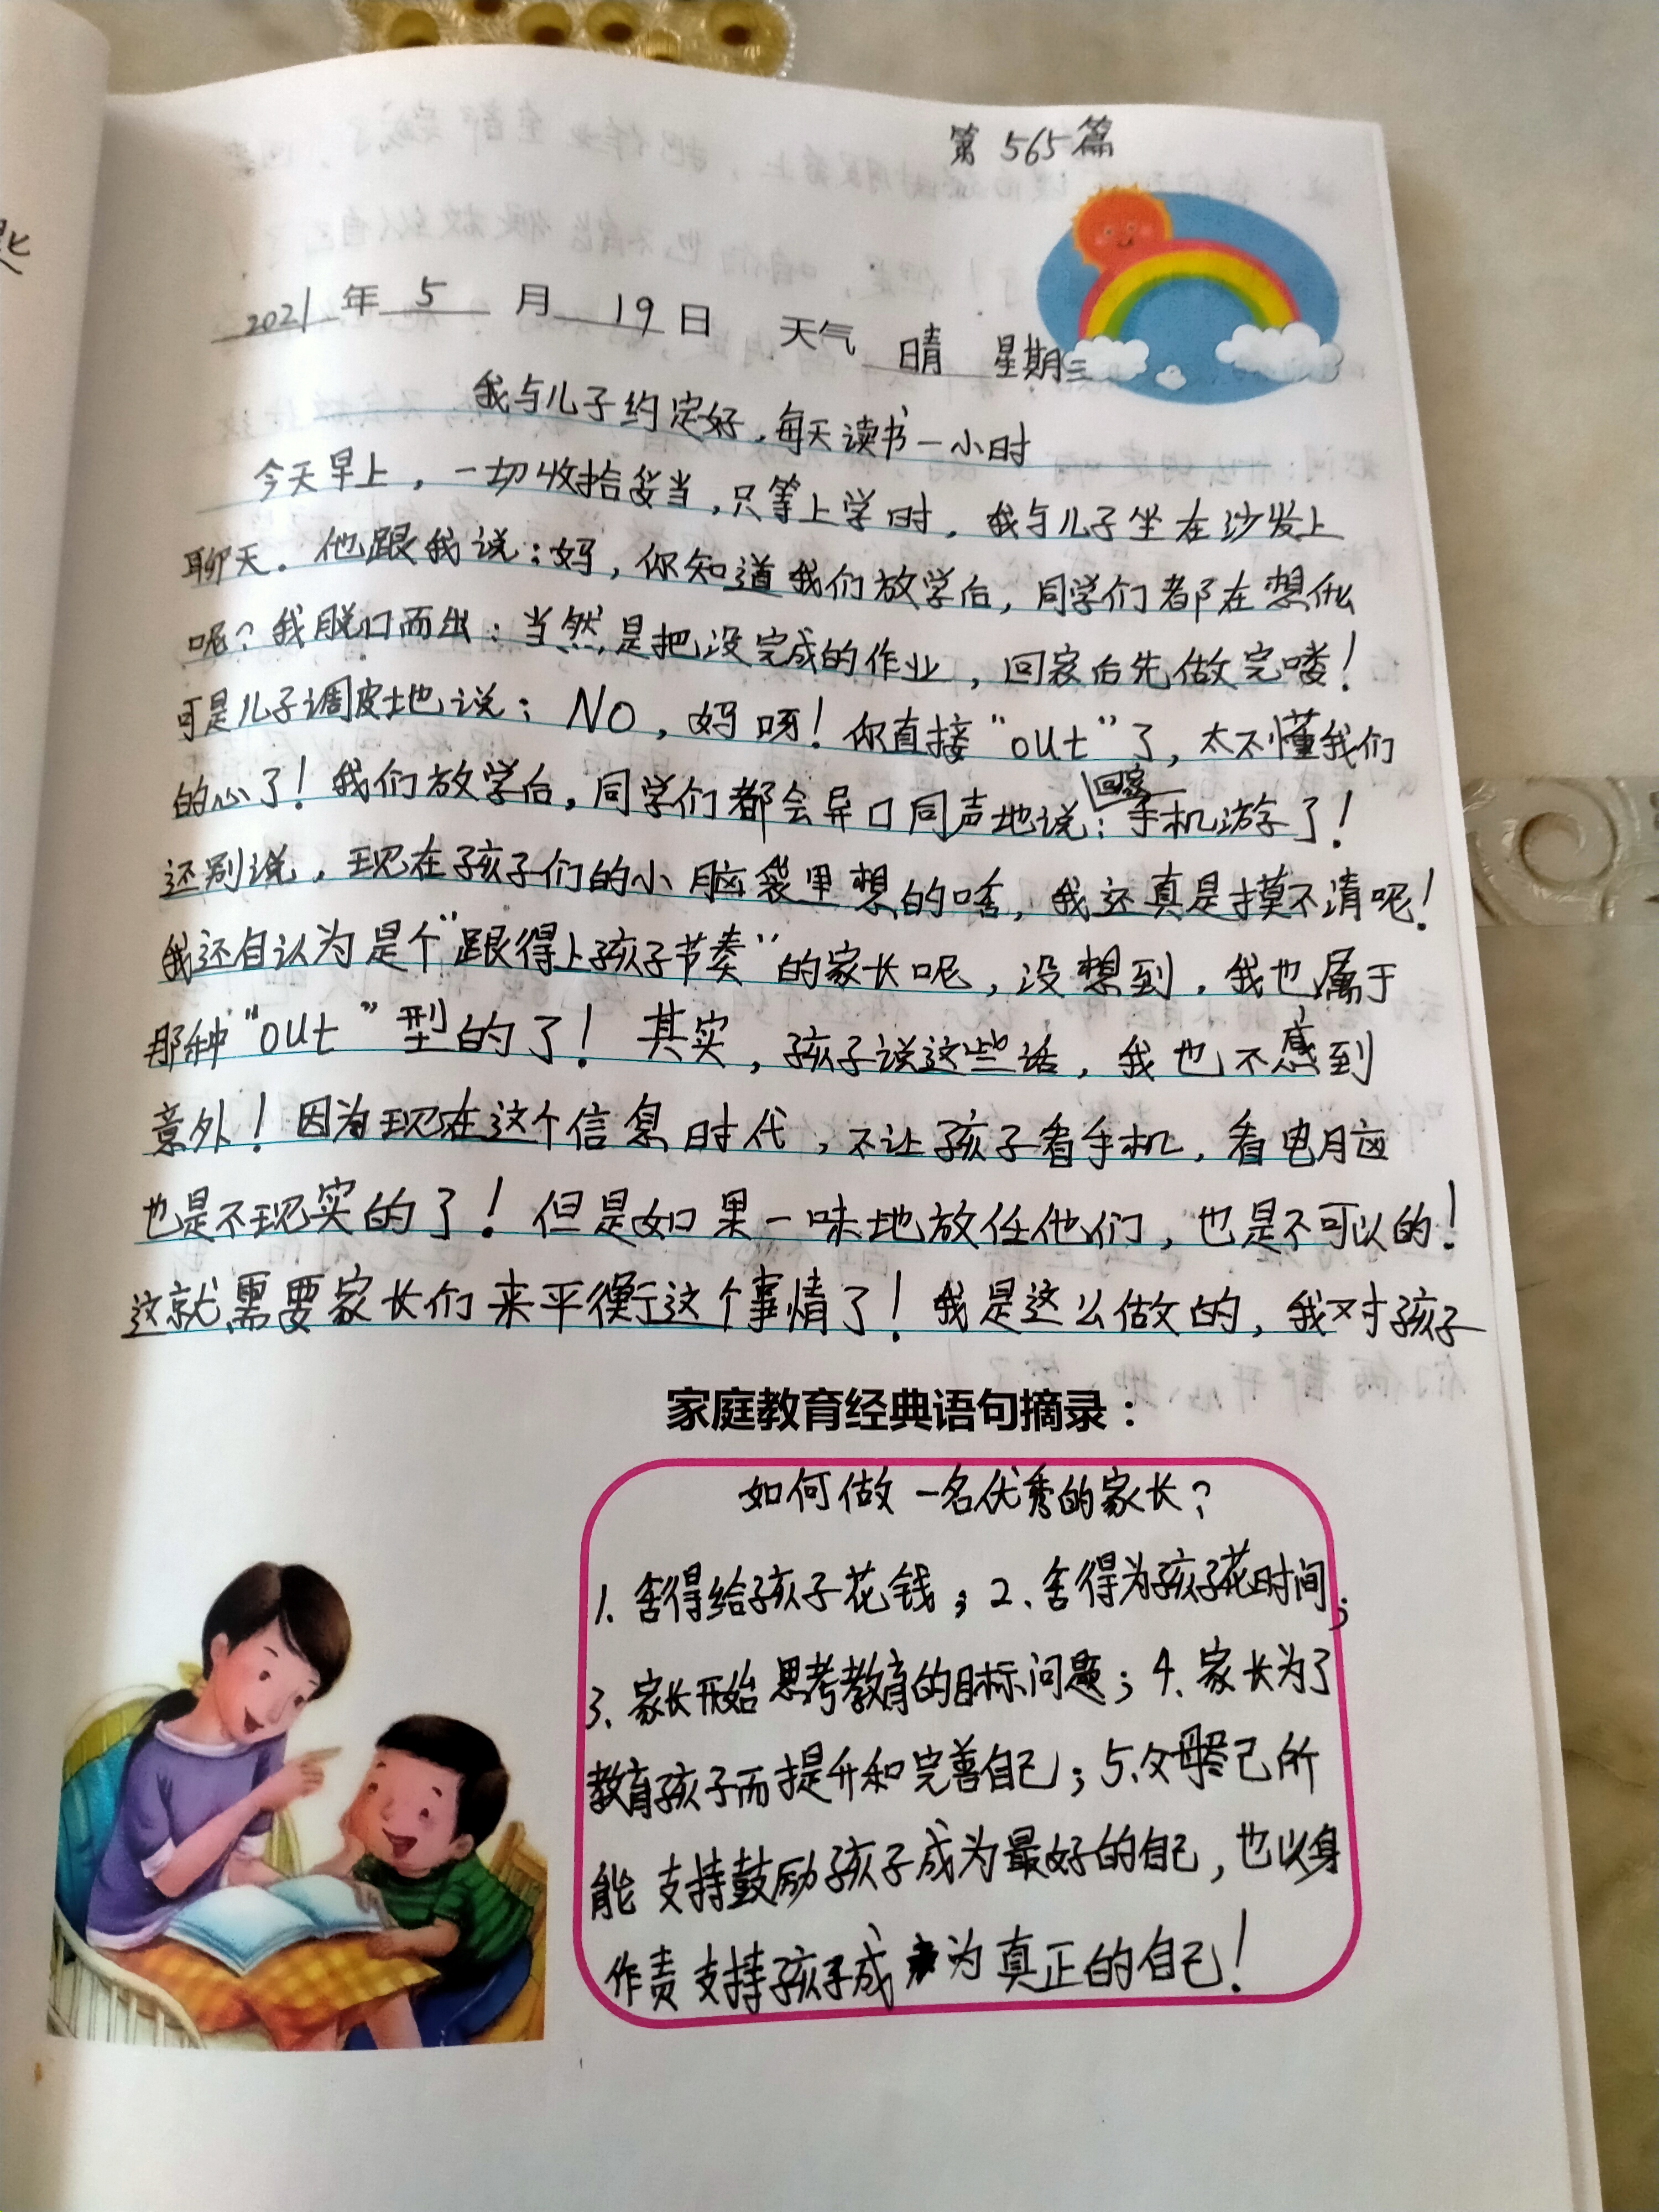 第565篇
2021年5月19日 天气 晴 星期三
我与儿子约定好，每天读书一小时
今天早上，一切收拾妥当，只等上学时，我与儿子坐在沙发上
聊天。他跟我说：妈，你知道我们放学后，同学们都在想什么
呢？我脱口而出：当然，是把没完成的作业，回家后先做完喽！
可是儿子调皮地说：NO，妈呀！你直接“out”了，太不懂我们
的心了！我们放学后，同学们都会异口同声地说：回家手机游字了！
还别说，现在孩子们的小脑袋里想的啥，我还真是摸不清呢！
我还自认为是个“跟得上孩子节奏”的家长呢，没想到，我也属于
那种“out”型的了！其实，孩子说这些话，我也不感到
意外！因为现在这个信息时代，不让孩子看手机，看电脑
也是不现实的了！但是如果一味地放任他们，也是不可以的！
这就需要家长们来平衡这个事情了！我是这么做的，我对孩子
家庭教育经典语句摘录：
如何做一名优秀的家长？
1、舍得给孩子花钱；2、舍得为孩子花时间；
3、家长开始思考教育的目标问题；4、家长为了
教育孩子而提升和完善自己；5、父母尽己所
能支持鼓励孩子成为最好的自己，也以身
作责支持孩子成为真正的自己！